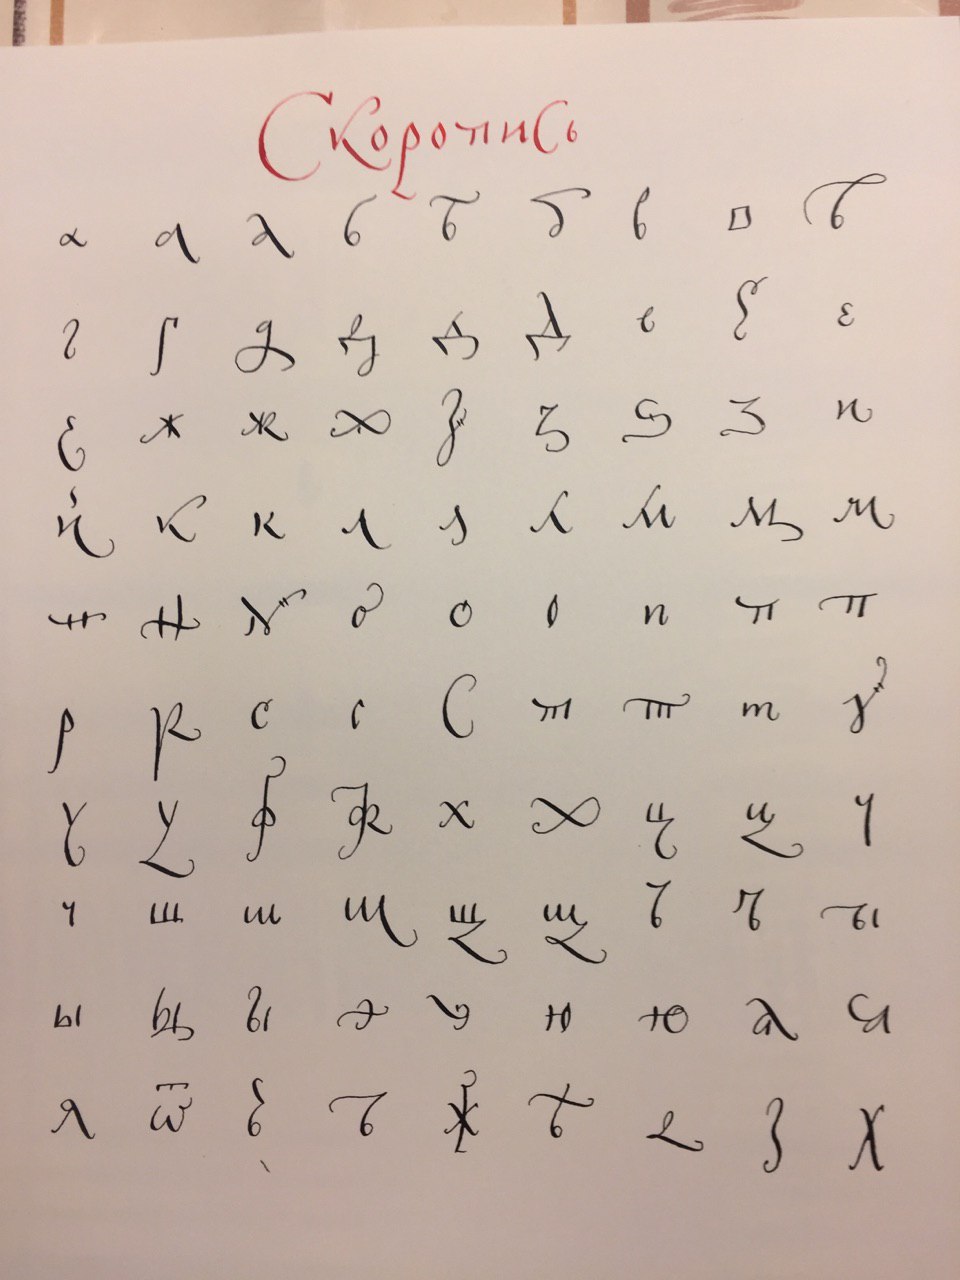 Скоропись
а а а б б б в в в
г г д д д д е е е
е ж ж ж з з ѕ з и
й к к л л л м м м
н н н о о о п п п
р р с с с т т т у
у у ф ф х х ц ц ч
ч ш ш щ щ щ ъ ъ ы
ы ы ы э э ю ю я я
я ѿ ѣ